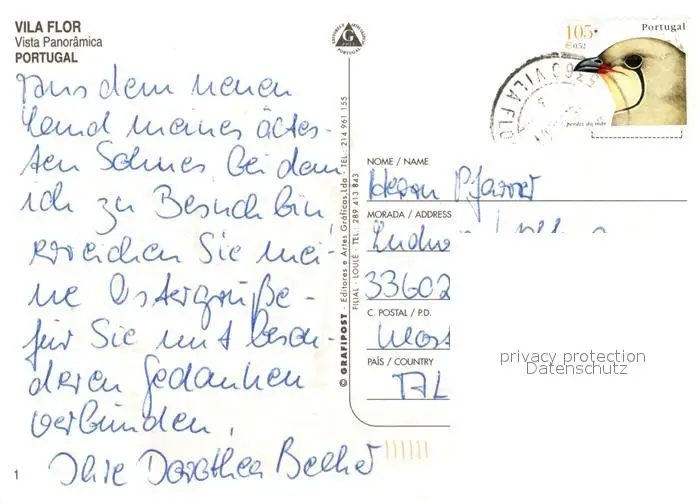 VILA FLOR
Vista Panorâmica
PORTUGAL
Aus dem neuen
Land meines ältes-
ten Sohnes, bei dem
ich zu Besuch bin,
erreichen Sie mei-
ne Ostergrüße -
für Sie mit beson-
deren Gedanken
verbunden,
Ihre Dorothea Becher
1
© GRAFIPOST - Editores e Artes Gráficas, Lda - TEL.: 214 961 155
FILIAL - LOULÉ - TEL.: 289 413 843
105·
€0.52
Portugal
perdiz do mar
5360 VILA FLO
NOME / NAME
Herrn Pfarrer
MORADA / ADDRESS
33602
C. POSTAL / P.D.
PAÍS / COUNTRY
privacy protection
Datenschutz